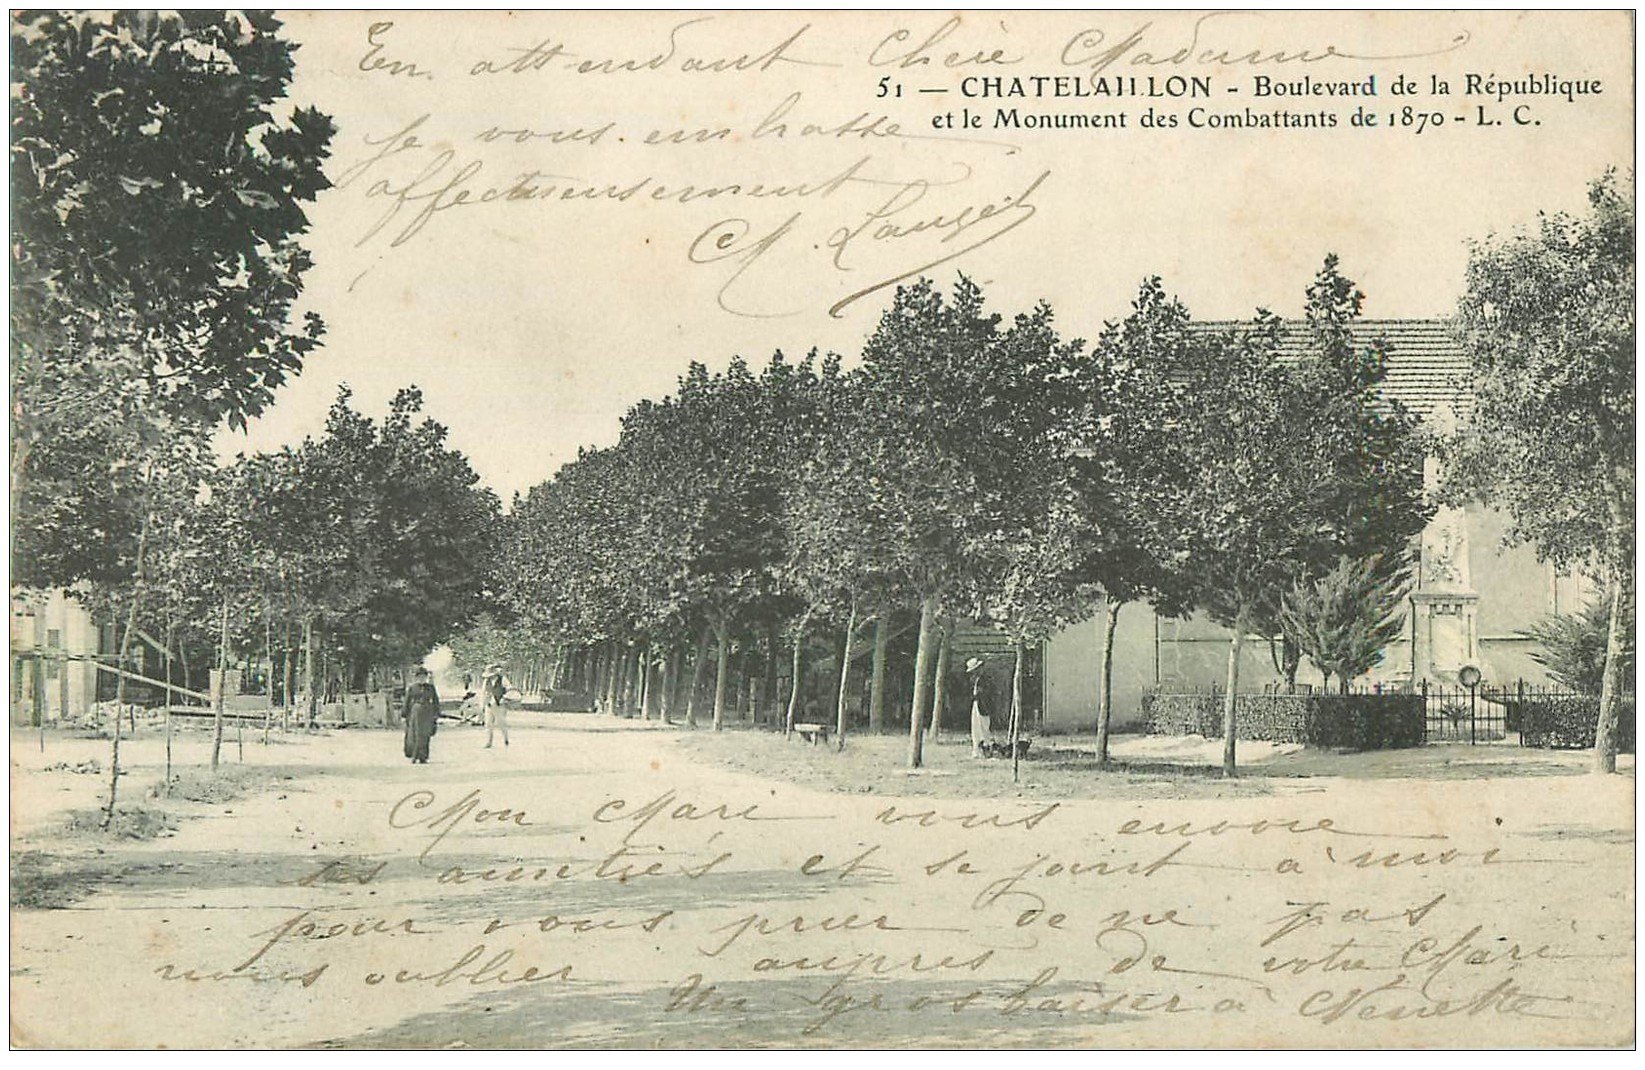 En attendant Chère Madame
51 — CHATELAILLON - Boulevard de la République
et le Monument des Combattants de 1870 - L. C.
Je vous embrasse
affectueusement
M. Lauget
Mon Mari vous envoie
ses amitiés et se joint à moi
pour vous prier de ne pas
nous oublier auprès de votre Mari
Un gros baiser à Nenette